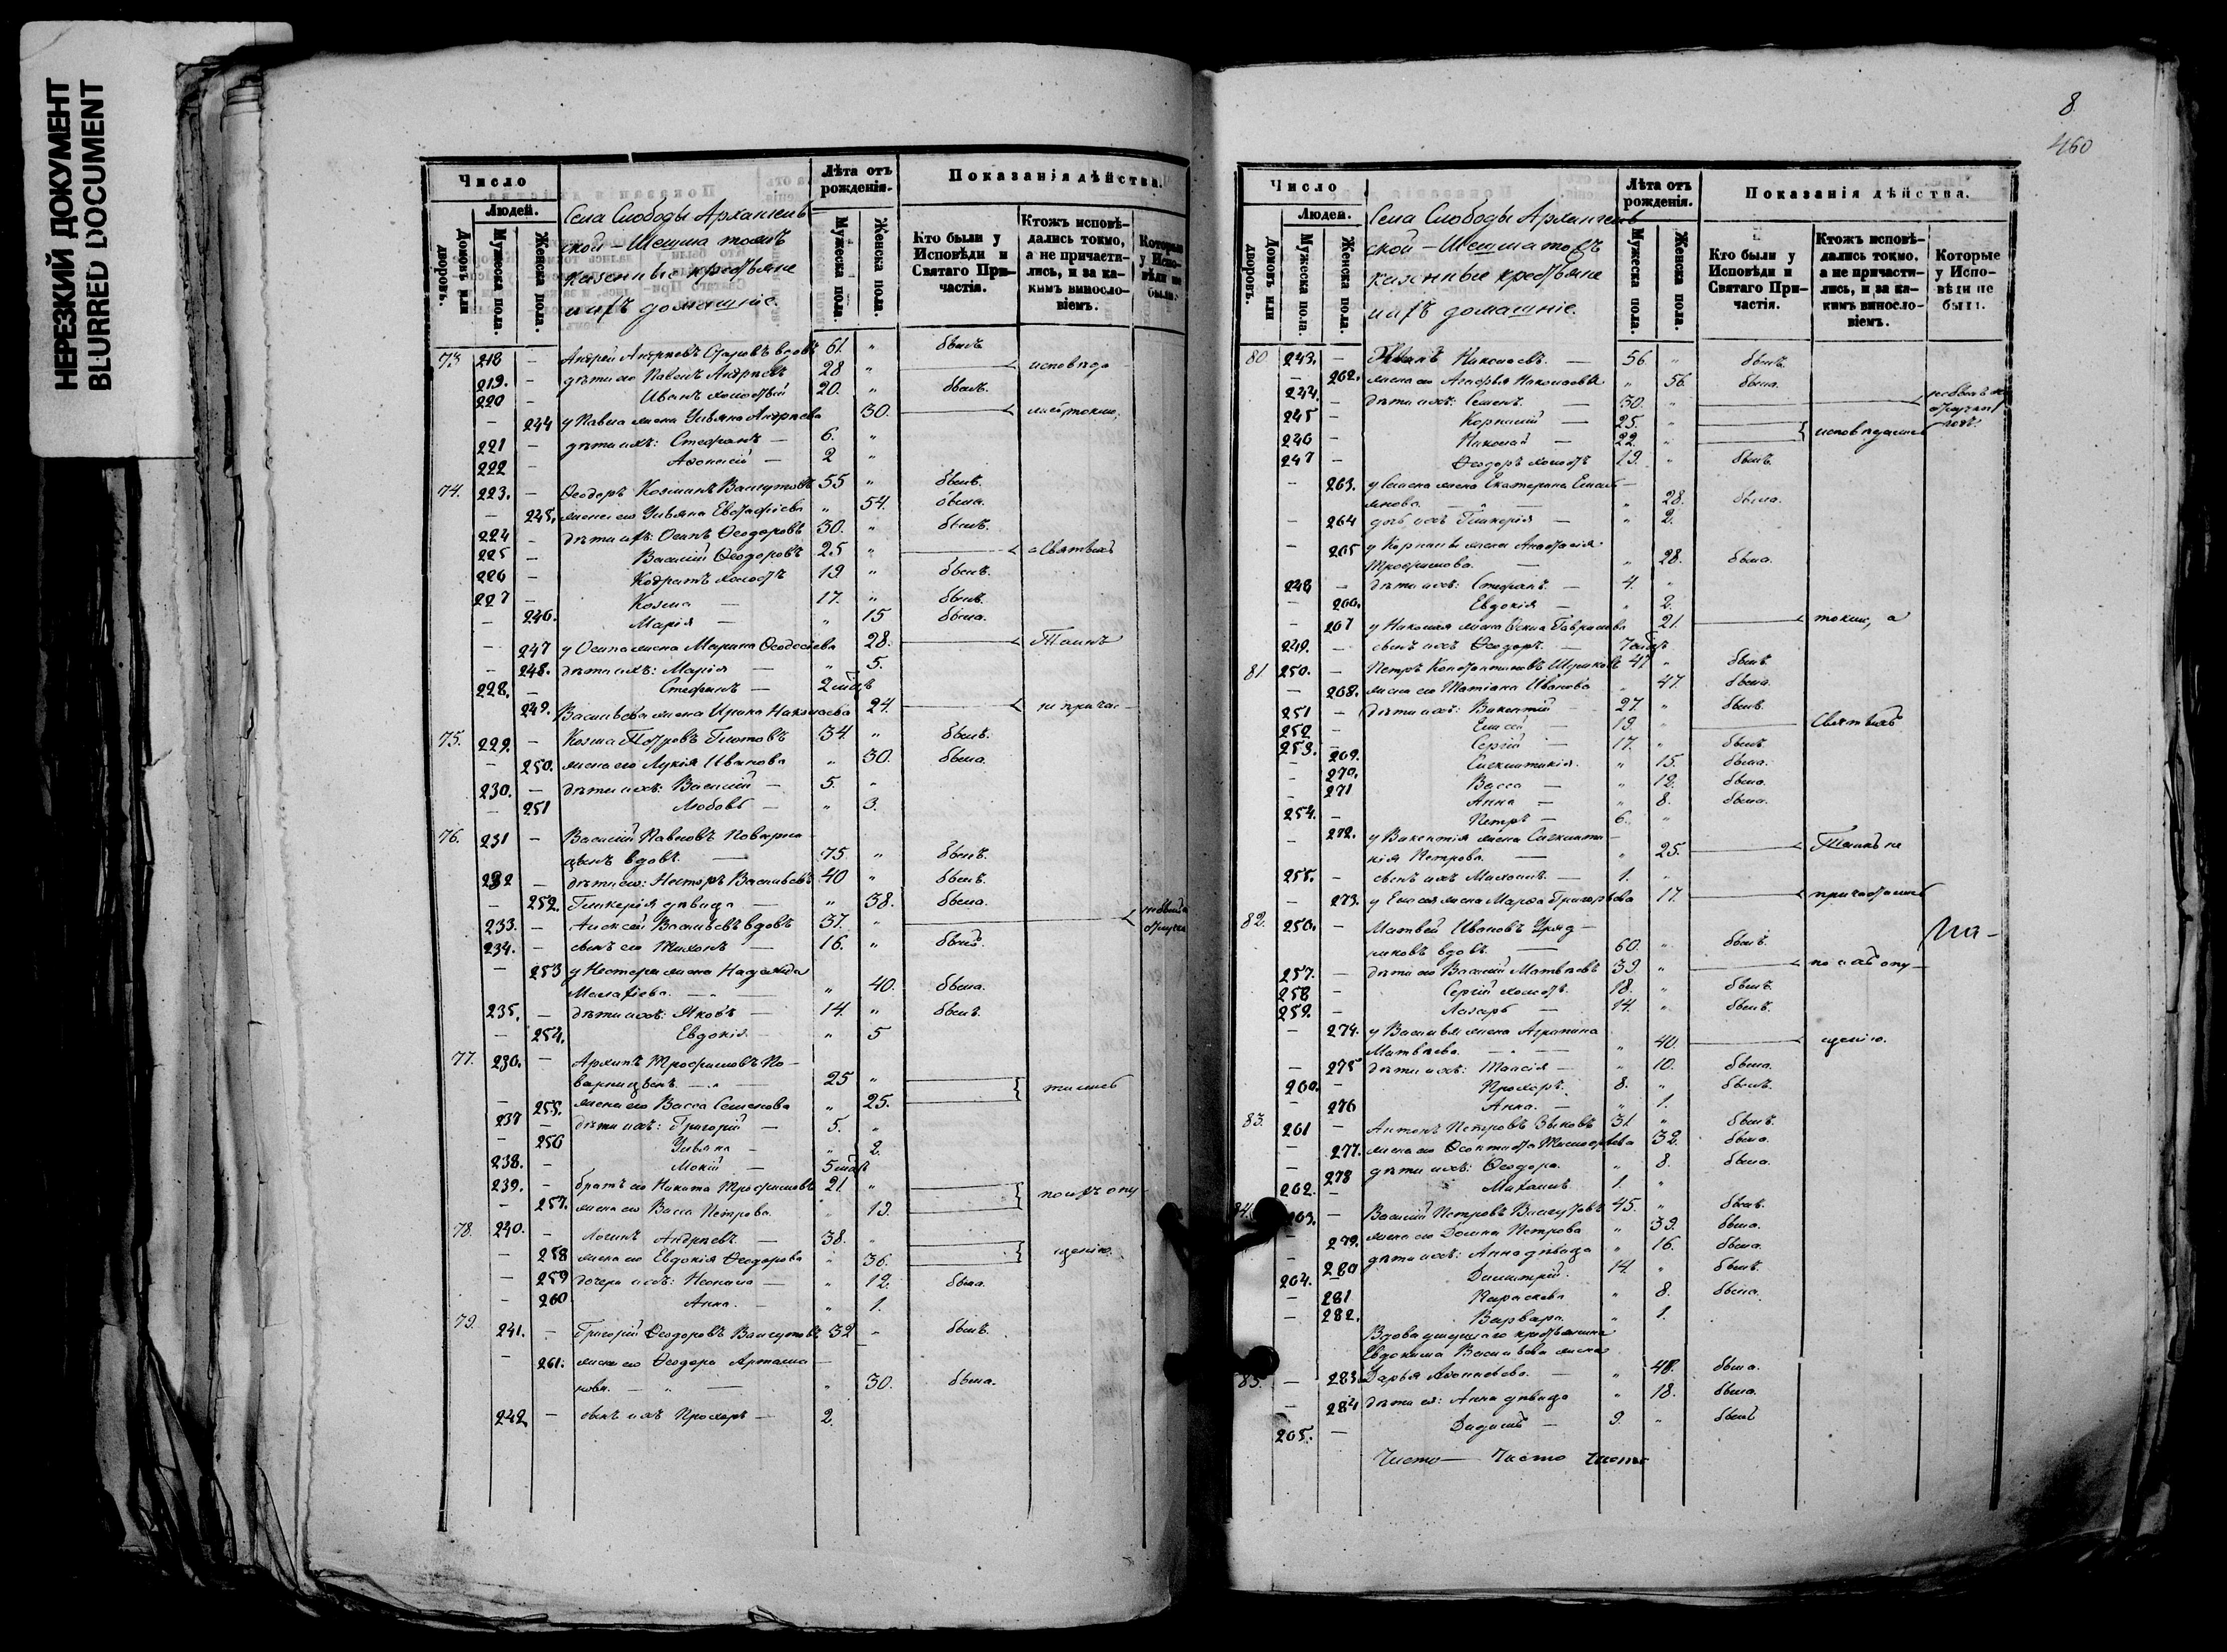 НЕРЕЗКИЙ ДОКУМЕНТ
BLURRED DOCUMENT
Число
Людей.
Домовъ или дворовъ.
Мужеска пола.
Женска пола.
Села Слободы Архангель
ской – Шешма тожъ
казенные крестьяне
и ихъ домашніе.
Лѣта отъ рожденія.
Мужеска пола.
Женска пола.
Показанія дѣйства.
Кто были у Исповѣди и Святаго Причастія.
Ктожъ исповѣдались токмо, а не причастились, и за какимъ винословіемъ.
Которые у Исповѣди не были.
73 218 – Андрей Андреевъ вдовъ 61. " былъ
219. – дѣти его Павелъ Андреевъ 28 " исповѣда
220 – Иванъ холостый 20. " былъ.
– 244 у Павла жена Ульяна Андреева 30. лись токмо,
221 – дѣти ихъ: Стефанъ – 6. "
222 – Аѳанасій – 2 "
74. 223. – Ѳеодоръ Козминъ 55 " былъ.
– 245. жена его Ульяна Евстафіева " 54. была.
224 – дѣти ихъ: Осипъ Ѳеодоровъ 30. " былъ.
225 – Василій Ѳеодоровъ 25 " а Святыхъ
226 – Кодратъ холостъ 19 " былъ.
227 – Козма – 17. " былъ.
– 246. Марія – " 15 была.
– 247 у Осипа жена Марина Ѳеодосіева 28. Таинъ
– 248. дѣти ихъ: Марія – " 5.
228. – Стефанъ – 2
249. Васильева жена Ирина Николаева 24. не причас–
75. 229. – Козма Петровъ 34. " былъ.
– 250. жена его Лукія Иванова " 30. была.
230. – дѣти ихъ: Василій – 5. "
– 251 Любовь – " 3.
76. 231 – Василій Павловъ Поварни
цынъ вдовъ. 75. " былъ.
232 – дѣти его: Несторъ Васильевъ 40 " былъ.
– 252. Гликерія дѣвица – " 38. была.
233. – Алексей Васильевъ вдовъ 37. "
234. – сынъ его Тихонъ – 16. " былъ.
– 253 у Нестера жена Надежда
– " – " 40. была.
235. – дѣти ихъ: Яковъ – 14. " былъ.
– 254. Евдокія – " 5
77. 236. – Архипъ Трофимовъ По–
варницынъ – " – 25 " тились
– 255. жена его Васса Семенова " 25.
237 – дѣти ихъ: Григорій – 5. "
– 256 Ульяна – " 2.
238. – Мокій – 5
239. – братъ его Никита Трофимовъ 21. " по ихъ опу
– 257. жена его Васса Петрова. " 19.
78. 240. – Логинъ Андреевъ. – 38. "
– 258 жена его Евдокія Ѳеодорова " 36. щенію.
– 259 дочери ихъ: Неонила – " 12. была.
– 260 Анна. – " 1.
79. 241. – Григорій Ѳеодоровъ 32 " былъ.
– 261. жена его Ѳеодора Артама–
нова. – " – " 30. была.
242. – сынъ ихъ Прохоръ – 2.
8.
460
Число
Людей.
Домовъ или дворовъ.
Мужеска пола.
Женска пола.
Села Слободы Архангель
ской – Шешма тожъ
казенные крестьяне
и ихъ домашніе.
Лѣта отъ рожденія.
Мужеска пола.
Женска пола.
Показанія дѣйства.
Кто были у Исповѣди и Святаго Причастія.
Ктожъ исповѣдались токмо, а не причастились, и за какимъ винословіемъ.
Которые у Исповѣди не были.
80. 243. – Николаевъ. – 56. " былъ.
– 262. жена его Агафья Николаева " 56. была.
244. – дѣти ихъ: Семенъ. – 30. "
245 – Корнилій – 25. " исповѣдались
246 – Николай – 22. "
247 – Ѳеодоръ холостъ 19. " былъ.
– 263. у Семена жена Екатерина Емель
янова. – " – " 28. была.
– 264 дочь ихъ Гликерія – " 2.
– 265 у Корнилы жена Анастасія
Трофимова. – " 28. была.
248 – дѣти ихъ: Стефанъ. – 4. "
– 266. Евдокія – " 2.
– 267 у Николая жена Гаврилова 21. токмо, а
249. – сынъ ихъ Ѳеодоръ. – 7
81. 250. – Петръ Константиновъ 47 " былъ.
– 268. жена его Татіана Иванова " 47. была.
251 – дѣти ихъ: Викентій – 27. " былъ.
252 – Елисей – 19. " Святыхъ
253. – Сергій – 17. " былъ.
– 269. Синклитикія. " 15. была.
– 270. Васса – " 12. была.
– 271 Анна – " 8. была.
254. – Петръ – 6. "
– 272. у Викентія жена Синклити–
кія Петрова. – " 25. Таинъ не
255. – сынъ ихъ Михаилъ. – 1. "
– 273. у Елисея жена Марѳа Григорьева 17. причастились
82. 256. – Матвей Ивановъ Уряд–
никовъ вдовъ. 60. " былъ.
257. – дѣти его Василій Матвѣевъ 39. " по ихъ опу–
258 – Сергій холостъ. 18. " былъ.
259. – Лазарь – 14. " былъ.
– 274. у Василья жена Агрипина
Матвѣева. – " – " 40. щенію.
– 275 дѣти ихъ: Таисія – " 10. была.
260. – Прохоръ. 8. " былъ.
– 276 Анна. – " 1.
83. 261 – Антонъ Петровъ Зыковъ 31. " былъ.
– 277. жена его Ѳеоктиста 32. была.
– 278 дѣти ихъ: Ѳеодора. " 8. была.
262. – Михаилъ. 1. "
84. 263. – Василій Петровъ 45. " былъ.
– 279. жена его Домна Петрова " 39. была.
– 280 дѣти ихъ: Анна дѣвица " 16. была.
264. – Димитрій. 14. " былъ.
– 281 Параскева " 8. была.
– 282. Варвара. " 1.
Вдова умершаго крестьянина
Евдокима Васильева жена
85. – 283. Дарья Аѳонасьева. – " 48. была.
– 284 дѣти ея: Анна дѣвица " 18. была.
265. – Дидимъ – 9. " былъ
Чисто – Чисто Чисто